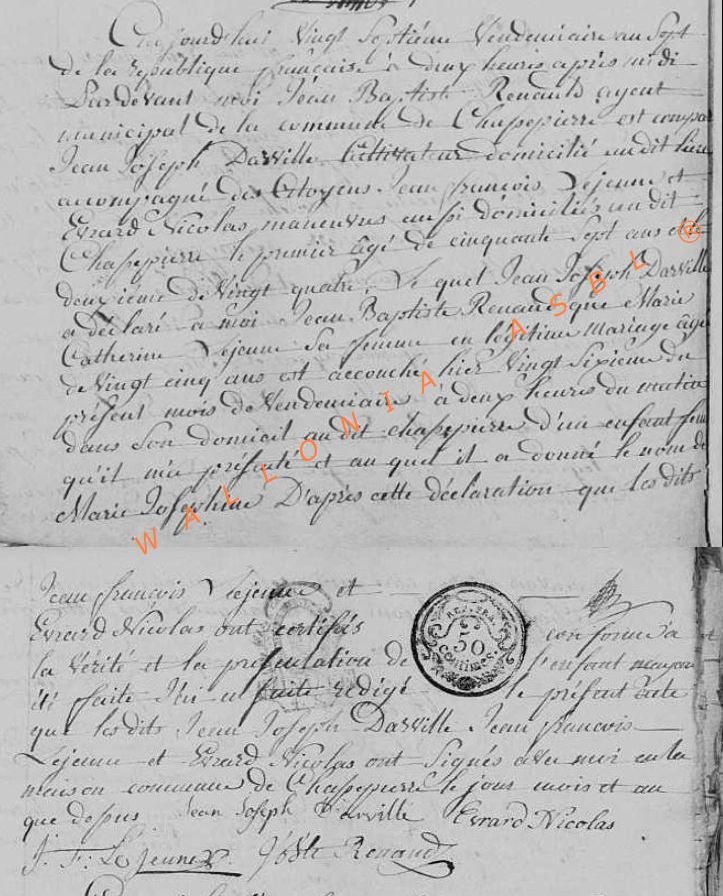 Cejourd'hui Vingt Septième Vendemiaire an Sept
de la république française à deux heures après midi
Pardevant moi Jean Baptiste Renauld agent
municipal de la commune de Chassepierre est compar
Jean Joseph Darville Cultivateur domicilié audit lieu
accompagné des Citoyens Jean françois Lejeune et
Evrard Nicolas manœuvres aussi domiciliés audit
Chassepierre le premier âgé de cinquante Sept ans et le
deuxieme de Vingt quatre, Le quel Jean Joseph Darville
a déclaré a moi Jean Baptiste Renauld que Marie
Catherine Lejeune Sa femme en légitime mariage âgée
de Vingt cinq ans est accouché hier Vingt Sixième du
présent mois de Vendemiaire à deux heures du matin
dans Son domicil audit chassepierre d'un enfant fem
qu'il m'a présenté et au quel il a donné le nom de
Marie Josephine D'après cette déclaration que les dits
WALLONIA ASBL ®
Jean françois Lejeune et
Evrard Nicolas ont certifés conforme à
la Vérité et la présentation de l'enfant
été faite J'ai rédigé le présent acte
que les dits Jean Joseph Darville Jean francois
Lejeune et Evrard Nicolas ont Signés avec moi en la
maison commune de Chassepierre le jour mois et an
que dessus Jean Joseph Darville Evrard Nicolas
J. F: Le jeune Jbste Renauld
50
Centimes.